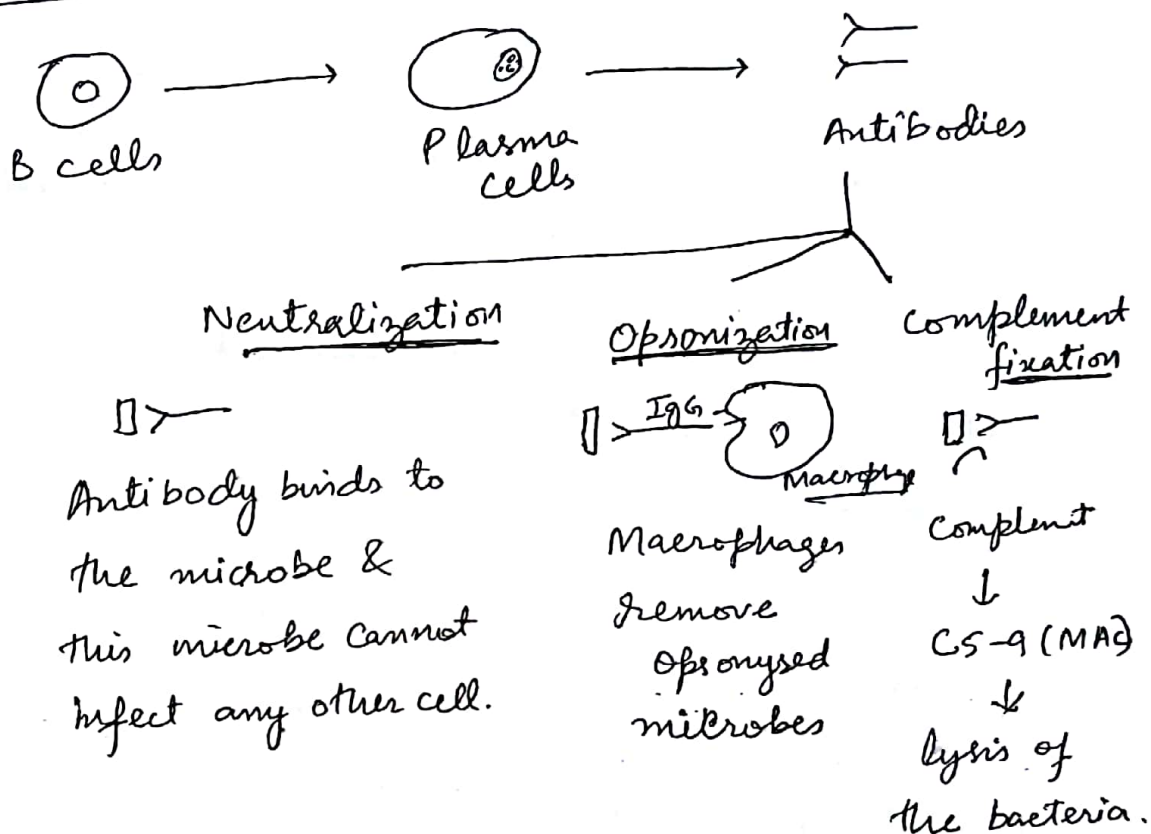 B cells
Plasma
cells
Antibodies
Neutralization
Antibody binds to
the microbe &
this microbe cannot
infect any other cell.
Opsonization
IgG
Macrophage
Macrophages
remove
opsonysed
microbes
Complement
fixation
Complent
C5-9 (MAC)
lysis of
the bacteria.